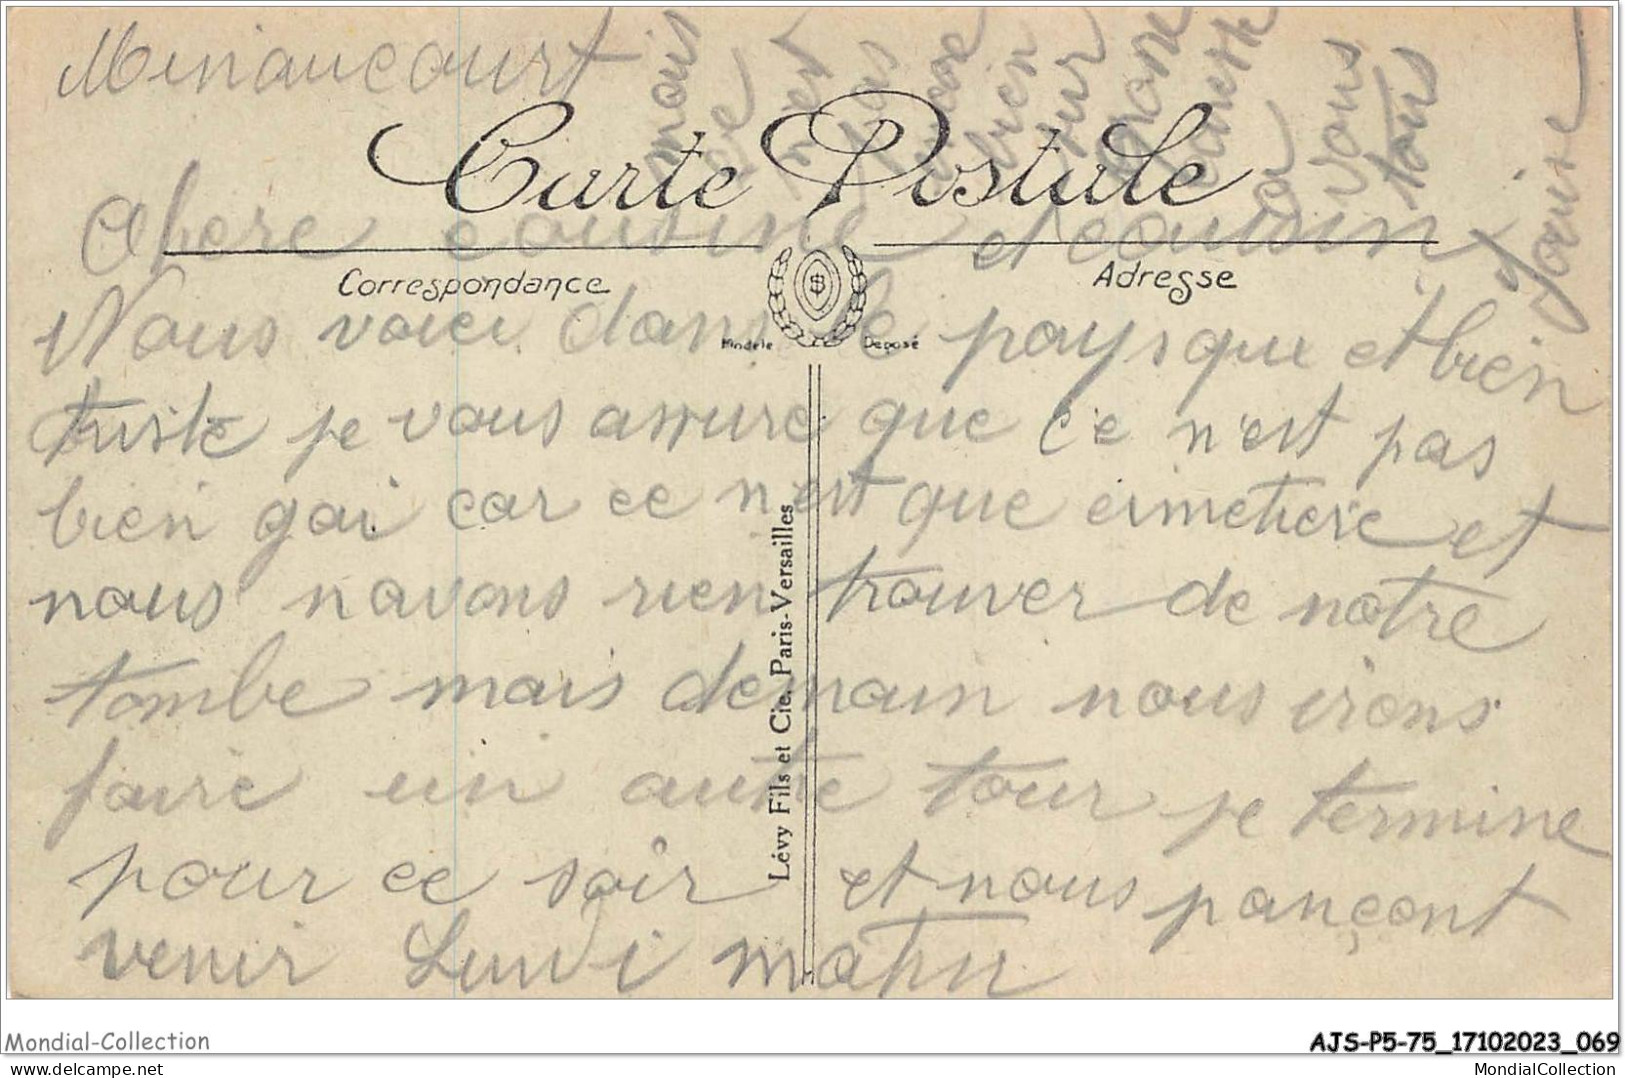 Minaucourt
Carte Postale
Chere cousine et cousin
Correspondance
Adresse
Modèle Déposé
Nous voici dans le pays qui et bien
triste je vous assure que ce n'est pas
bien gai car ce n'est que cimetiere et
nous navons rien trouver de notre
tombe mais demain nous irons
faire un autre tour je termine
pour ce soir et nous pançont
venir Lundi matin
mais
bien
sur
grosse
caresse
a
vous
tous
Lévy Fils et Cie. Paris-Versailles
Mondial-Collection
AJS-P5-75_17102023_069
www.delcampe.net
MondialCollection